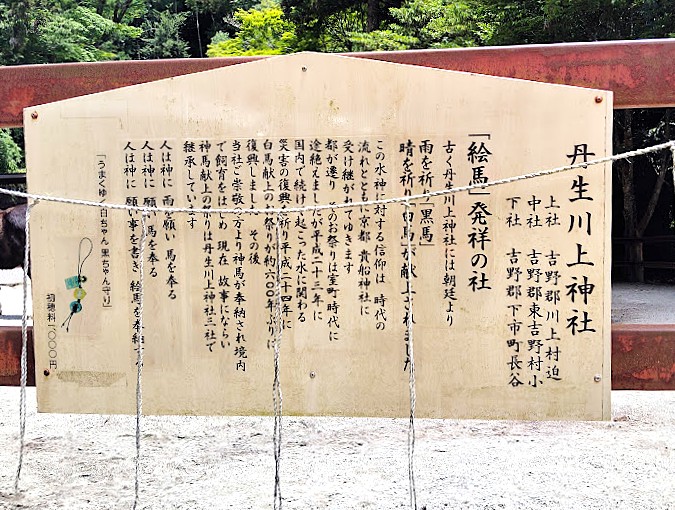 丹生川上神社
上社 吉野郡川上村迫
中社 吉野郡東吉野村小
下社 吉野郡下市町長谷
「絵馬」発祥の社
古く丹生川上神社には朝廷より
雨を祈り「黒馬」
晴を祈り「白馬」が献上されました
この水神に対する信仰は 時代の
流れとともに京都 貴船神社に
受け継がれてゆきます
都が遷り そのお祭りは室町時代に
途絶えましたが平成二十三年に
国内で続けて起こった水に関わる
災害の復興を祈り平成二十四年に
白馬献上のお祭りが約六〇〇年ぶりに
復興しました その後
当社ご崇敬の方より神馬が奉納され境内
で飼育をはじめ 現在 故事にならい
神馬献上の祭りは丹生川上神社三社で
継承しています
人は神に 雨を願い 馬を奉る
人は神に 願い 馬を奉る
人は神に 願い事を書き 絵馬を奉納する
「うまくゆく白ちゃん 黒ちゃん守り」
初穂料一〇〇〇円